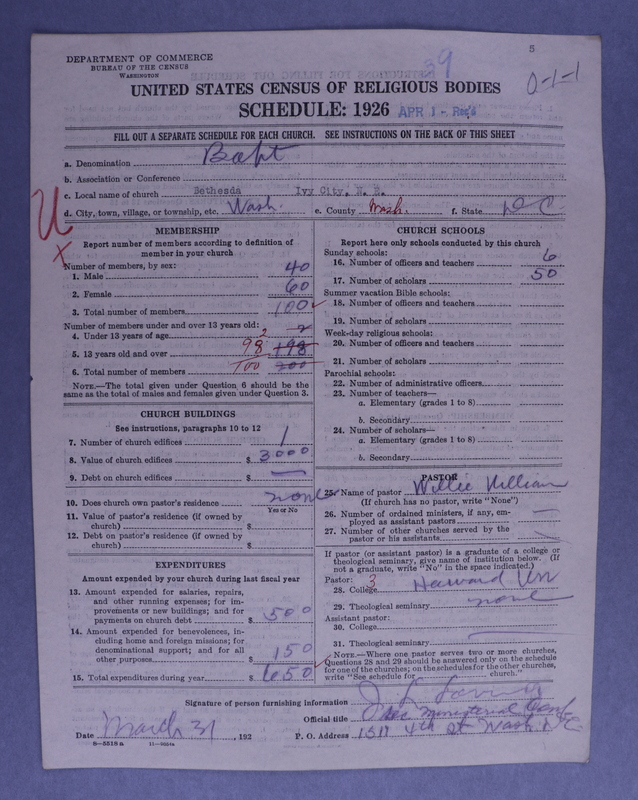 5
DEPARTMENT OF COMMERCE
BUREAU OF THE CENSUS
WASHINGTON
59
0-1-1
UNITED STATES CENSUS OF RELIGIOUS BODIES
SCHEDULE: 1926 APR 1 - Rec'd
FILL OUT A SEPARATE SCHEDULE FOR EACH CHURCH. SEE INSTRUCTIONS ON THE BACK OF THIS SHEET
a. Denomination Bapt
b. Association or Conference
c. Local name of church Bethesda Ivy City, N. E.
d. City, town, village, or township, etc. Wash. e. County Wash. f. State D C
MEMBERSHIP
Report number of members according to definition of
member in your church
Number of members, by sex:
1. Male 40
2. Female 60
3. Total number of members 100
Number of members under and over 13 years old:
4. Under 13 years of age 2 2
5. 13 years old and over 98 198
6. Total number of members 100 200
NOTE.—The total given under Question 6 should be the
same as the total of males and females given under Question 3.
CHURCH BUILDINGS
See instructions, paragraphs 10 to 12
7. Number of church edifices 1
8. Value of church edifices $ 3000
9. Debt on church edifices $ —
10. Does church own pastor's residence none
Yes or No
11. Value of pastor's residence (if owned by
church) $
12. Debt on pastor's residence (if owned by
church) $
EXPENDITURES
Amount expended by your church during last fiscal year
13. Amount expended for salaries, repairs,
and other running expenses; for im-
provements or new buildings; and for
payments on church debt $ 500
14. Amount expended for benevolences, in-
cluding home and foreign missions; for
denominational support; and for all
other purposes $ 150
15. Total expenditures during year $ 650
CHURCH SCHOOLS
Report here only schools conducted by this church
Sunday schools:
16. Number of officers and teachers 6
17. Number of scholars 50
Summer vacation Bible schools:
18. Number of officers and teachers
19. Number of scholars
Week-day religious schools:
20. Number of officers and teachers
21. Number of scholars
Parochial schools:
22. Number of administrative officers
23. Number of teachers—
a. Elementary (grades 1 to 8)
b. Secondary
24. Number of scholars—
a. Elementary (grades 1 to 8)
b. Secondary
PASTOR
25. Name of pastor Willie
(If church has no pastor, write "None")
26. Number of ordained ministers, if any, em-
ployed as assistant pastors —
27. Number of other churches served by the
pastor or his assistants —
If pastor (or assistant pastor) is a graduate of a college or
theological seminary, give name of institution below. (If
not a graduate, write "No" in the space indicated.)
Pastor: 3
28. College Howard Un
29. Theological seminary none
Assistant pastor:
30. College
31. Theological seminary
NOTE.—Where one pastor serves two or more churches,
Questions 28 and 29 should be answered only on the schedule
for one of the churches; on the schedules for the other churches,
write "See schedule for church."
Signature of person furnishing information J L
Official title Sec Ministerial Conf
Date March 31, 192 P. O. Address 1511 4th St Wash D C
8—5518 a 11—9554a